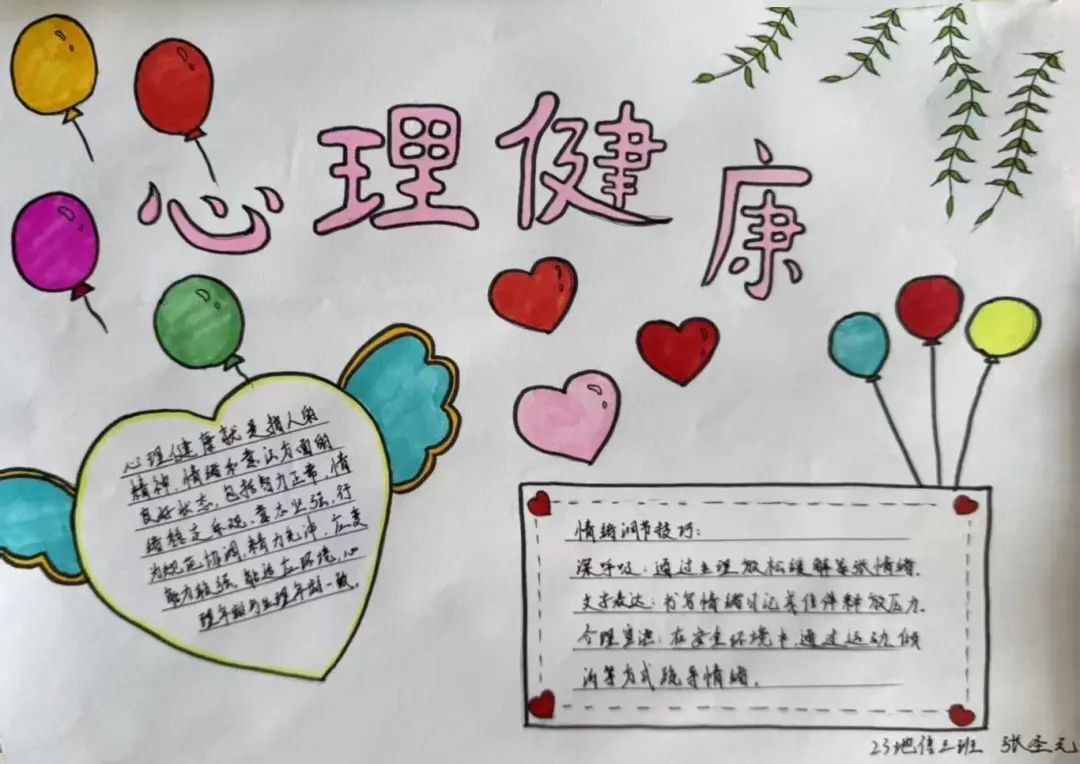 心理健康
心理健康就是指人的
精神、情绪和意识方面的
良好状态，包括智力正常，情
绪稳定乐观，意志坚强，行
为规范协调，精力充沛，应变
能力较强，能适应环境，心
理年龄与生理年龄一致。
情绪调节技巧：
深呼吸：通过生理放松缓解紧张情绪。
文字表达：书写情绪日记或信件释放压力。
合理宣泄：在安全环境中通过运动、倾
诉等方式疏导情绪。
23地信三班 张圣元